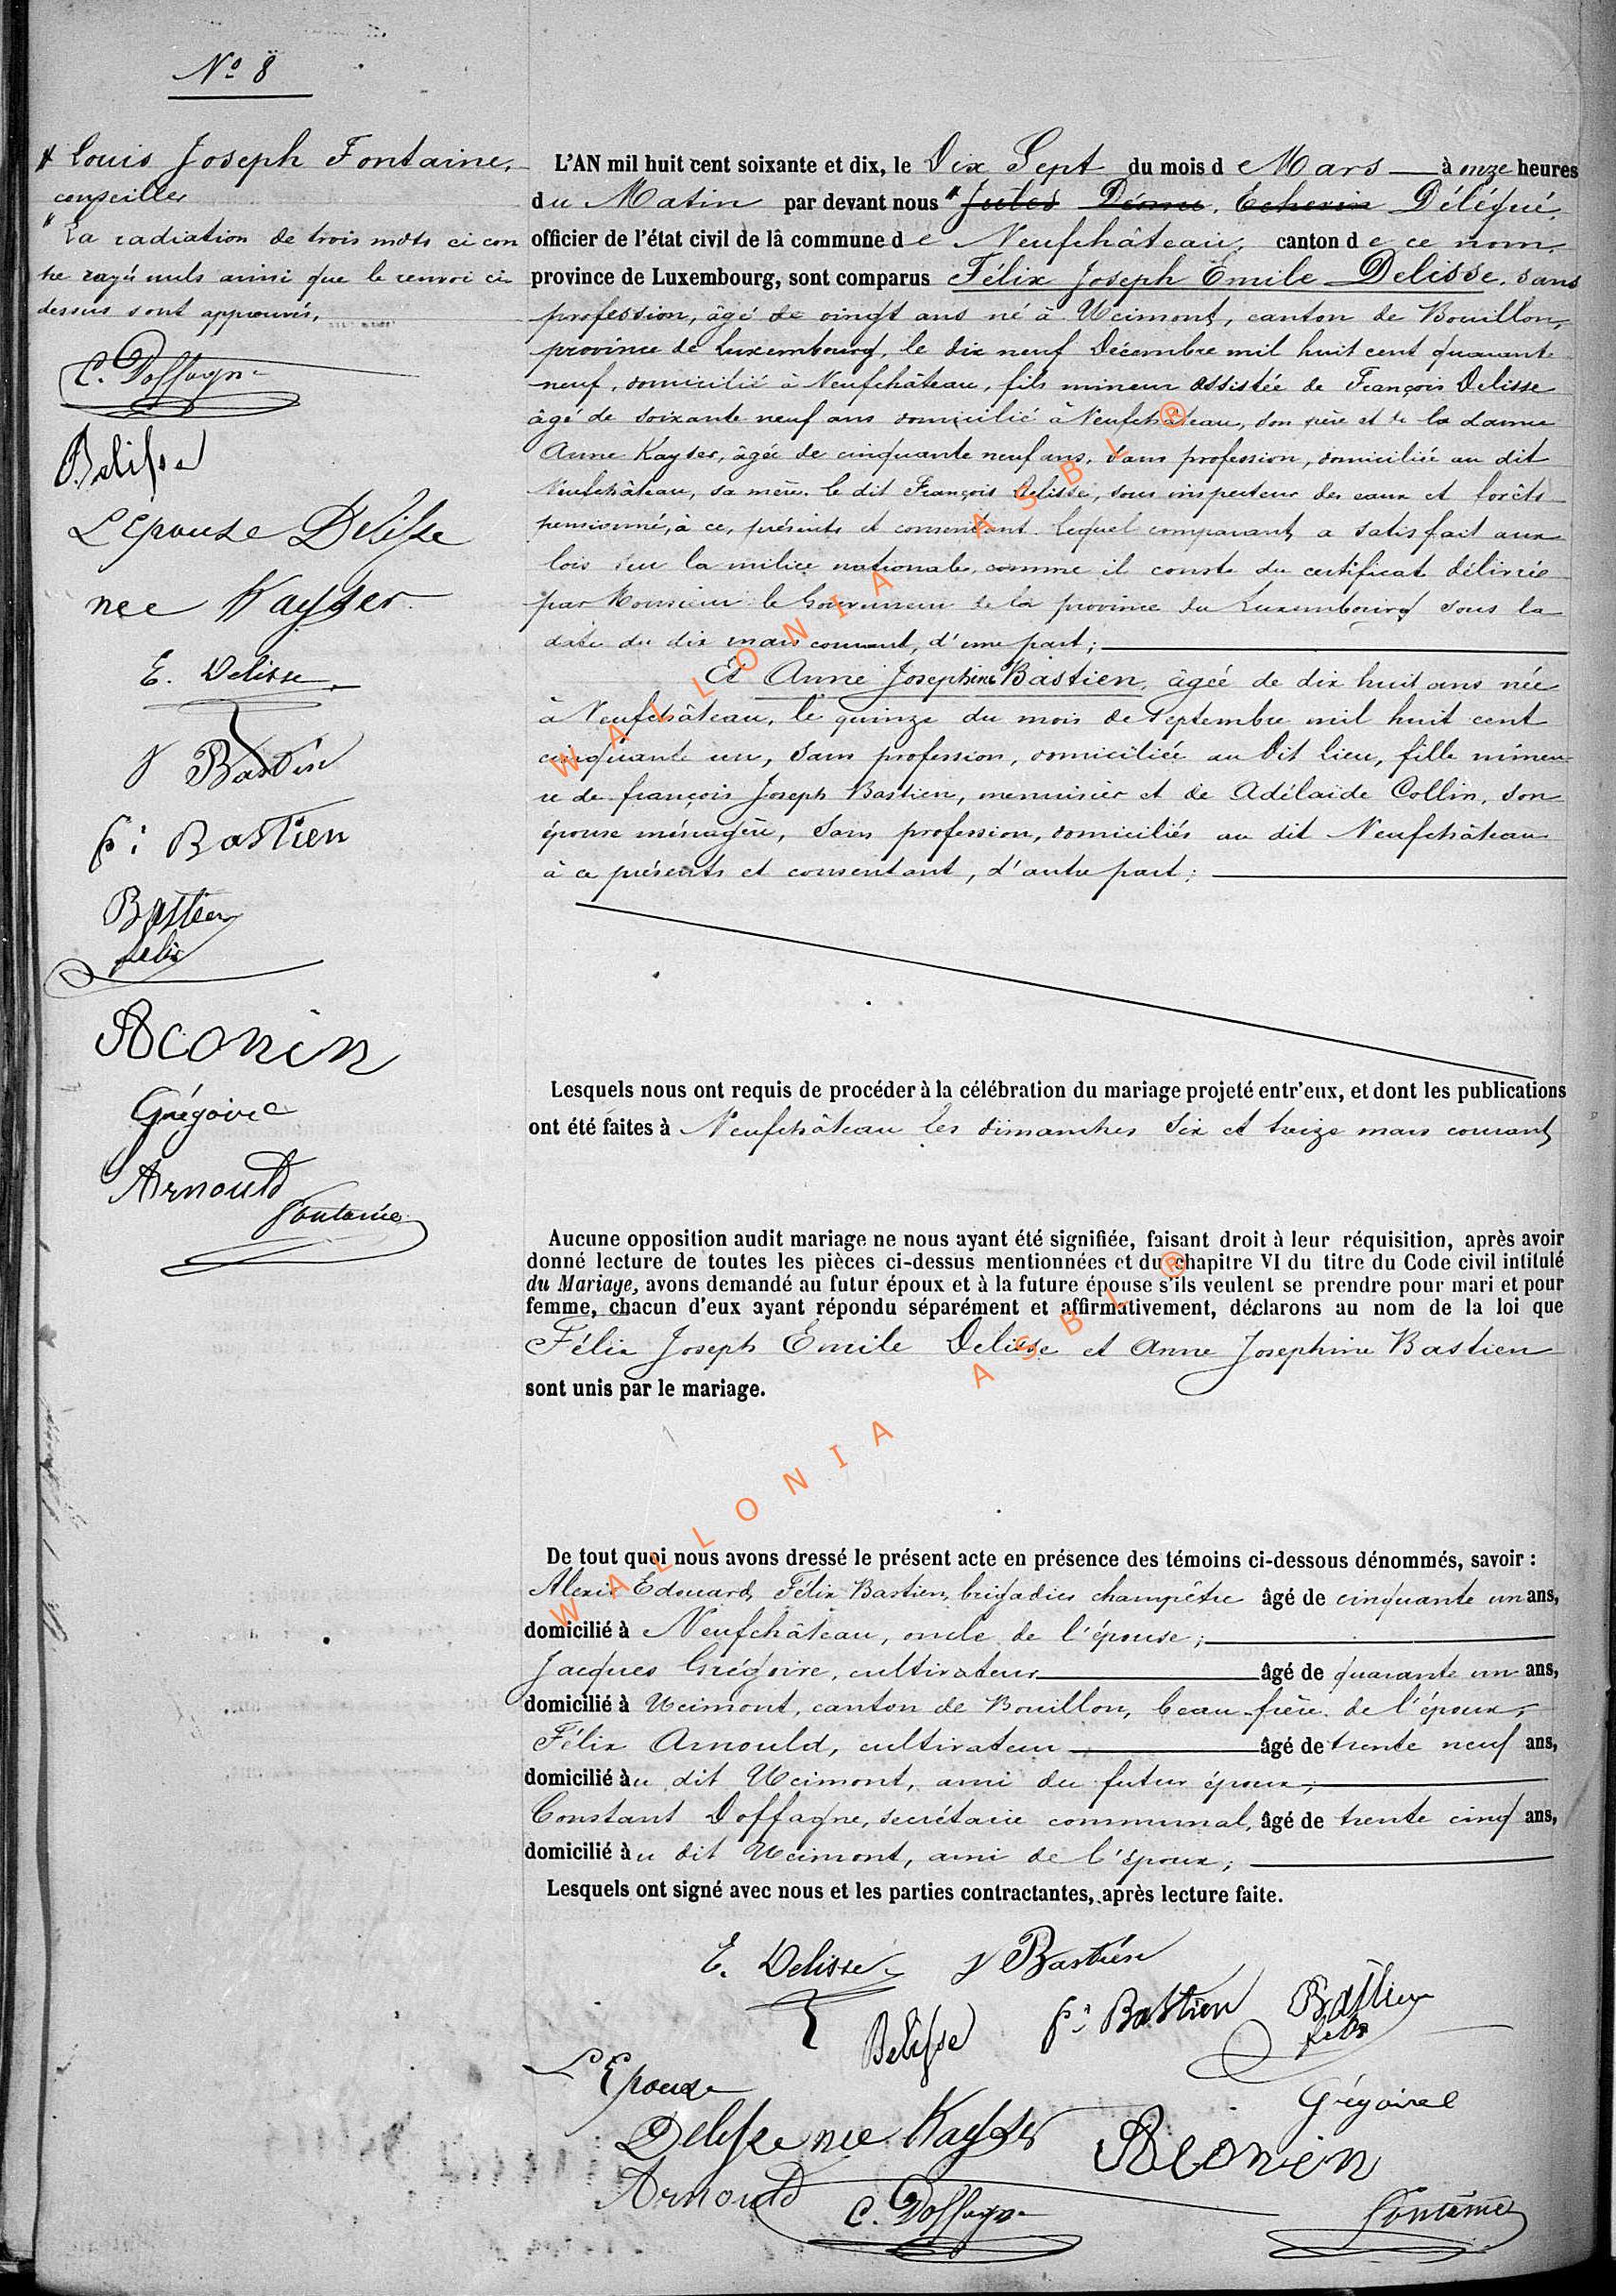 Nº 8
x Louis Joseph Fontaine,
conseiller
La radiation de trois mots ci con
tre rayés nuls ainsi que le renvoi ci
dessus sont approuvés,
C. Doffagne
Delisse
L'épouse Delisse
née Kayser
E. Delisse
J Bastien
f: Bastien
Bastien
felix
AConin
Grégoire
Arnould
Fontaine
L'AN mil huit cent soixante et dix, le Dix Sept du mois d e Mars à onze heures
du Matin par devant nous Jules Echevin Délégué,
officier de l'état civil de la commune de Neufchâteau, canton de ce nom,
province de Luxembourg, sont comparus Félix Joseph Emile Delisse, sans
profession, âgé de vingt ans né à Ucimont, canton de Bouillon,
province de Luxembourg, le dix neuf Décembre mil huit cent quarante
neuf, domicilié à Neufchâteau, fils mineur assistée de François Delisse
âgé de soixante neuf ans domicilié à Neufchâteau, son père et de la dame
Anne Kayser, âgée de cinquante neuf ans, sans profession, domiciliée au dit
Neufchâteau, sa mère. le dit François Delisse, sous inspecteur des eaux et forêts
pensionné, à ce, présents et consentant. Lequel comparant, a satisfait aux
lois sur la milice nationale, comme il conste du certificat délivrée
par Monsieur le Gouverneur de la province du Luxembourg sous la
date du dix mars courant, d'une part;
Et Anne Josephine Bastien, âgée de dix huit ans née
à Neufchâteau, le quinze du mois de Septembre mil huit cent
cinquante un, sans profession, domiciliée au dit lieu, fille mineu
re de françois Joseph Bastien, menuisier et de Adélaïde Collin, son
épouse ménagère, sans profession, domiciliés au dit Neufchâteau
à ce présents et consentant, d'autre part;
Lesquels nous ont requis de procéder à la célébration du mariage projeté entr'eux, et dont les publications
ont été faites à Neufchâteau les dimanches six et treize mars courant
Aucune opposition audit mariage ne nous ayant été signifiée, faisant droit à leur réquisition, après avoir
donné lecture de toutes les pièces ci-dessus mentionnées et du chapitre VI du titre du Code civil intitulé
du Mariage, avons demandé au futur époux et à la future épouse s'ils veulent se prendre pour mari et pour
femme, chacun d'eux ayant répondu séparément et affirmativement, déclarons au nom de la loi que
Félix Joseph Emile Delisse et Anne Josephine Bastien
sont unis par le mariage.
De tout quoi nous avons dressé le présent acte en présence des témoins ci-dessous dénommés, savoir :
Alexis Edouard Félix Bastien, brigadier champêtre âgé de cinquante un ans,
domicilié à Neufchâteau, oncle de l'épouse;
Jacques Grégoire, cultivateur âgé de quarante un ans,
domicilié à Ucimont, canton de Bouillon, beau-frère de l'époux,
Félix Arnould, cultivateur âgé de trente neuf ans,
domicilié àu dit Ucimont, ami du futur époux;
Constant Doffagne, secrétaire communal, âgé de trente cinq ans,
domicilié àu dit Ucimont, ami de l'époux;
Lesquels ont signé avec nous et les parties contractantes, après lecture faite.
E. Delisse J Bastien
Delisse f: Bastien Bastien
felix
L'Epouse
Grégoire
Delisse née Kayser AConin
Arnould C. Doffagne Fontaine
WALLONIA ASBL ®
WALLONIA ASBL ®